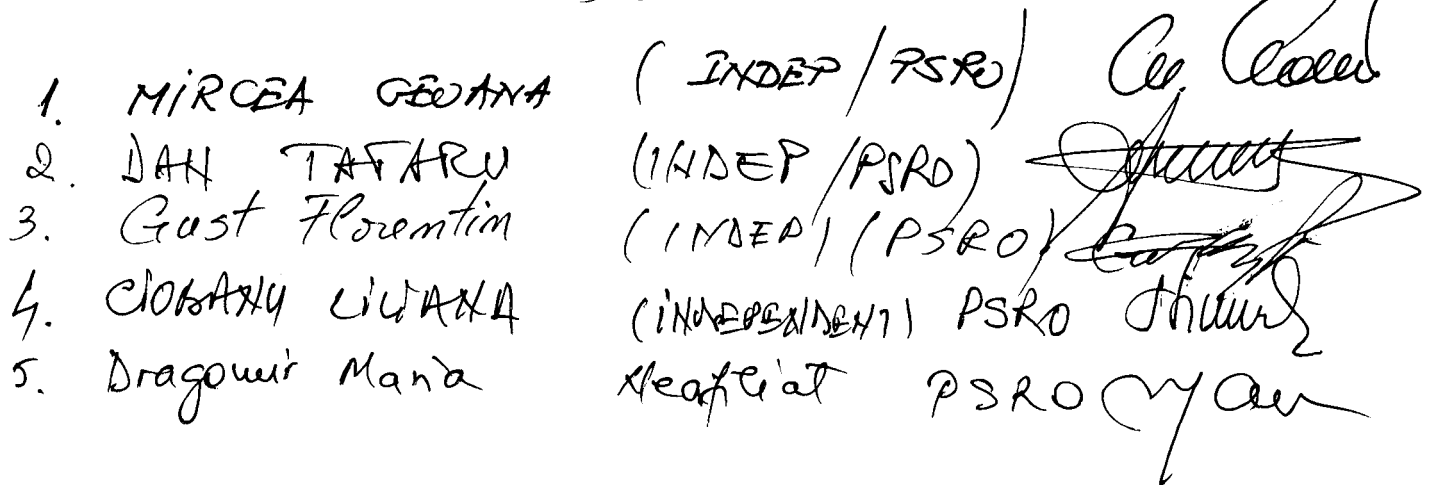 1. MIRCEA GEOANA (INDEP/PSRO)
2. DAN TATARU (INDEP/PSRO)
3. Gust Florentin (INDEP) (PSRO)
4. CIOBANU LILIANA (INDEPENDENT) PSRO
5. Dragomir Maria Neafiliat PSRO